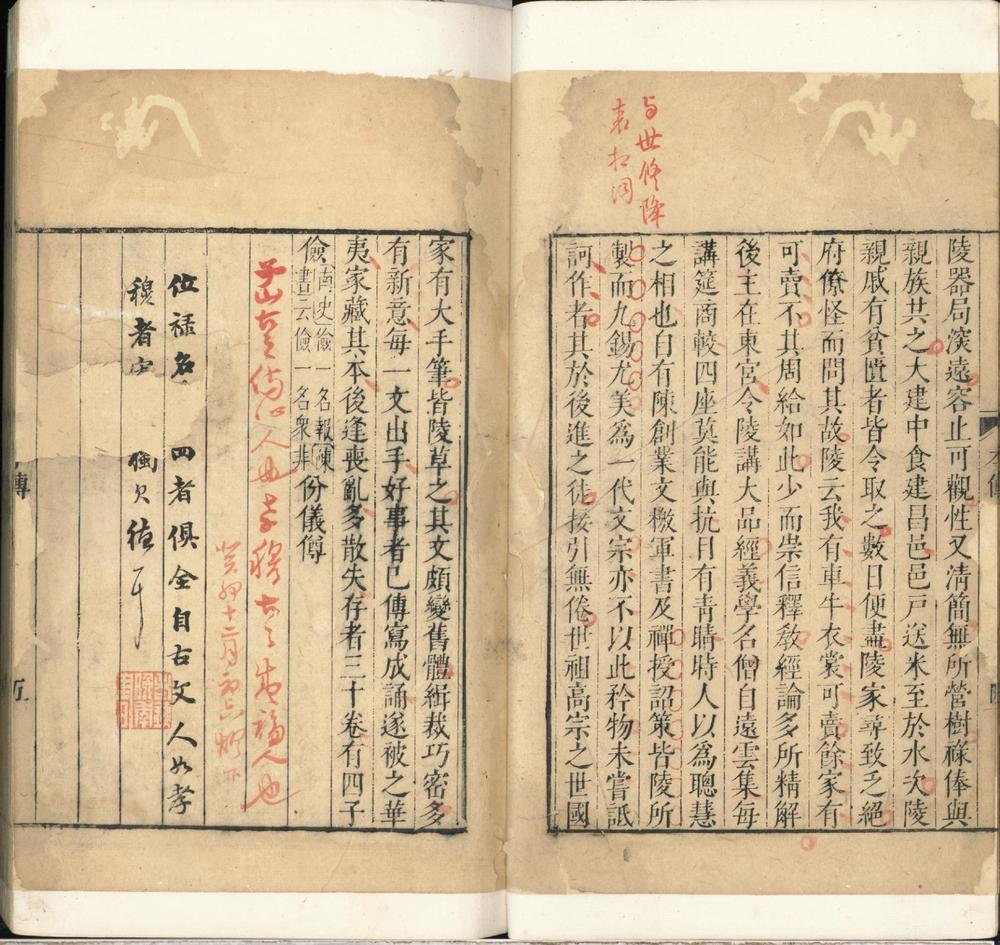 与世修降
陵器局深遠容止可觀性又淸簡無所營樹祿俸與
親族共之大建中食建昌邑邑戶送米至於水次陵
親戚有貧匱者皆令取之數日便盡陵家尋致乏絕
府僚怪而問其故陵云我有車牛衣裳可賣餘家有
可賣不其周給如此少而崇信釋敎經論多所精解
後主在東宮令陵講大品經義學名僧自遠雲集每
講筵商較四座莫能與抗目有靑睛時人以爲聰慧
之相也自有陳創業文檄軍書及禪授詔策皆陵所
製而九錫尤美爲一代文宗亦不以此矜物未嘗詆
訶作者其於後進之徒接引無倦世祖高宗之世國
家有大手筆皆陵草之其文頗變舊體緝裁巧密多
有新意每一文出手好事者已傳寫成誦遂被之華
夷家藏其本後逢喪亂多散失存者三十卷有四子
儉南史儉一名報陳
書云儉一名衆非份儀僔
人也孝穆
福人也
癸卯十二月
位祿名 四者俱全自古文人如孝
穆者
傳